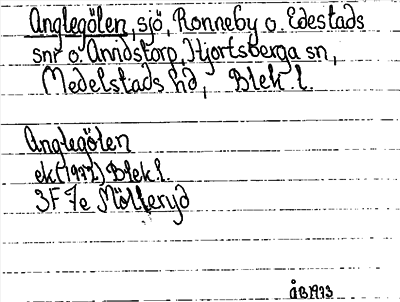 Anglegölen, sjö, Ronneby o. Edestads
snr o. Anndstorp, Hjortsberga sn,
Medelstads hd, Blek. l.
Anglegölen
ek (1972) Blek. l.
3F 7e Möllenyd
ÅB 1973